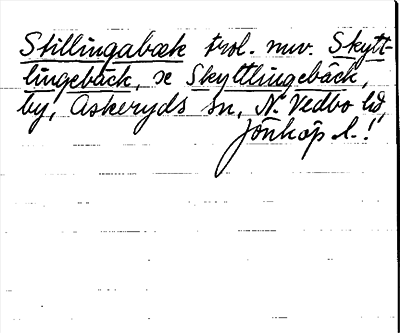 Stillingabæk trol. nuv. Skytt-
lingebäck, se Skyttlingebäck,
by, Askeryds sn, N. Vedbo hd,
Jönköp. l.!